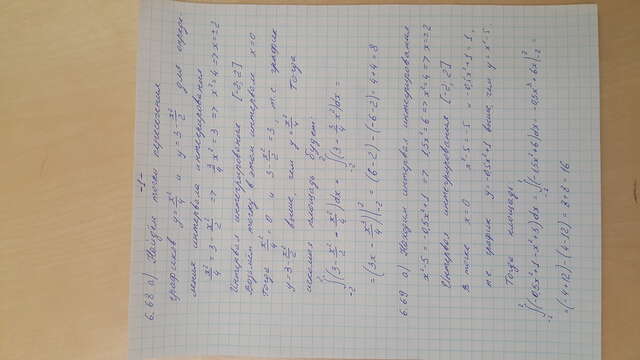 -1-
6.68 а) Найдём точки пересечения
графиков y = x²/4 и y = 3 - x²/2 для опреде-
ления интервала интегрирования
x²/4 = 3 - x²/2 => 3/4 x² = 3 => x² = 4 => x = ±2
Интервал интегрирования [-2; 2]
Возьмём точку в этом интервале x = 0
Тогда x²/4 = 0 и 3 - x²/2 = 3, т.е график
y = 3 - x²/2 выше, чем y = x²/4 Тогда
искомая площадь будет:
∫₋₂² (3 - x²/2 - x²/4) dx = ∫₋₂² (3 - 3/4 x²) dx =
= (3x - x³/4) |₋₂² = (6-2) - (-6-2) = 4+4 = 8
6.69 а) Находим интервал интегрирования
x² - 5 = -0,5x² + 1 => 1,5x² = 6 => x² = 4 => x = ±2
Интервал интегрирования [-2; 2]
В точке x = 0 x² - 5 = -5 и -0,5x² + 1 = 1,
т.е график y = -0,5x² + 1 выше, чем y = x² - 5
Тогда площадь
∫₋₂² (-0,5x² + 1 - x² + 5) dx = ∫₋₂² (-1,5x² + 6) dx = -0,5x³ + 6x |₋₂² =
= (-4+12) - (4-12) = 8+8 = 16